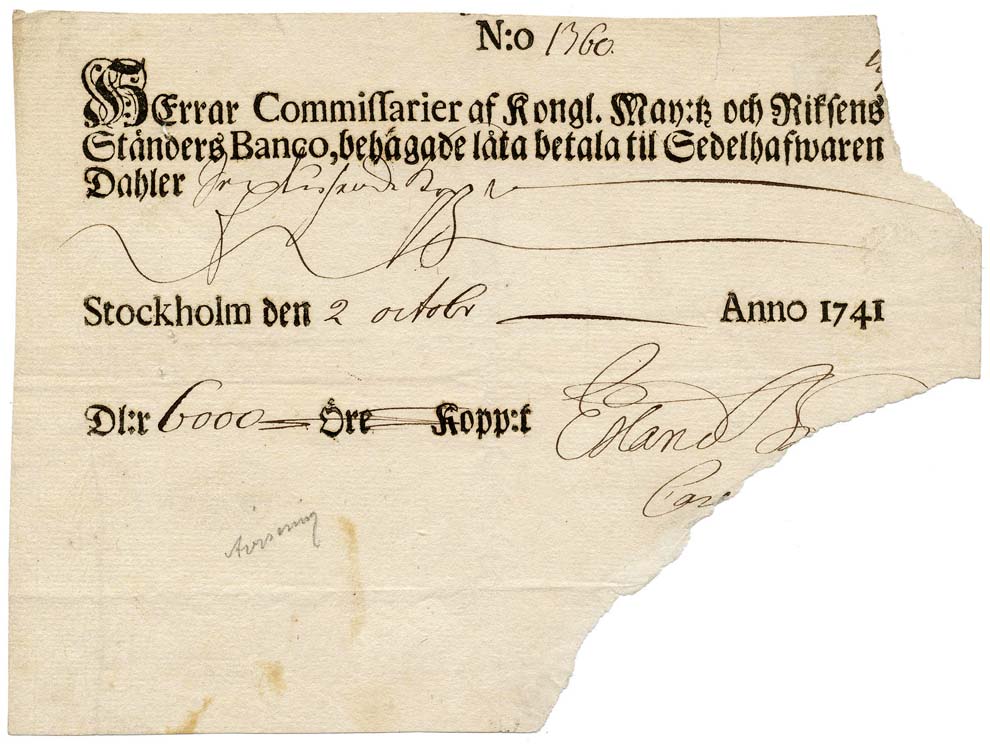 N:o 1360.
HErrar Commiſſarier af Kongl. May:tz och Rikſens
Ständers Banco, behägade låta betala til Sedelhafwaren
Dahler Sex tusende
Stockholm den 2 octobr Anno 1741
Dl:r 6000 Öre Kopp:t
Erland
Avisering